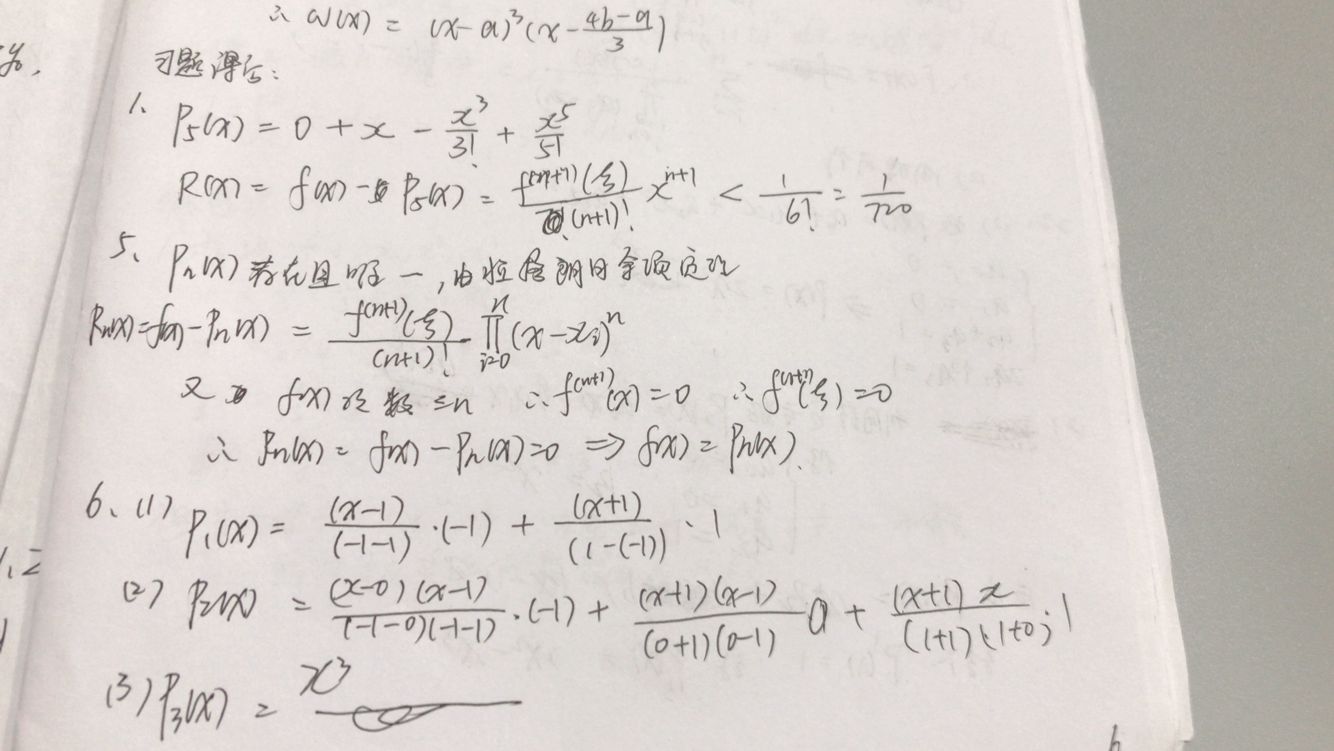 ∴ ω(x) = (x-a)³(x - \frac{4b-a}{3})
习题课后:
1、P₅(x) = 0 + x - \frac{x³}{3!} + \frac{x⁵}{5!}
R(x) = f(x) - P₅(x) = \frac{f^{(n+1)}(ξ)}{(n+1)!} x^{n+1} < \frac{1}{6!} = \frac{1}{720}
5、Pₙ(x) 存在且唯一,由拉格朗日余项定理
Rₙ(x)=f(x)-Pₙ(x) = \frac{f^{(n+1)}(ξ)}{(n+1)!} \prod_{i=0}^{n} (x-x_i)^n
又 f(x) 次数 ≤n ∴ f^{(n+1)}(x)=0 ∴ f^{(n+1)}(ξ)=0
∴ Rₙ(x) = f(x) - Pₙ(x)=0 ⇒ f(x) = Pₙ(x).
6、(1) P₁(x) = \frac{(x-1)}{(-1-1)} ·(-1) + \frac{(x+1)}{(1-(-1))} · 1
(2) P₂(x) = \frac{(x-0)(x-1)}{(-1-0)(-1-1)} ·(-1) + \frac{(x+1)(x-1)}{(0+1)(0-1)} 0 + \frac{(x+1)x}{(1+1)(1+0)} · 1
(3) P₃(x) = x³